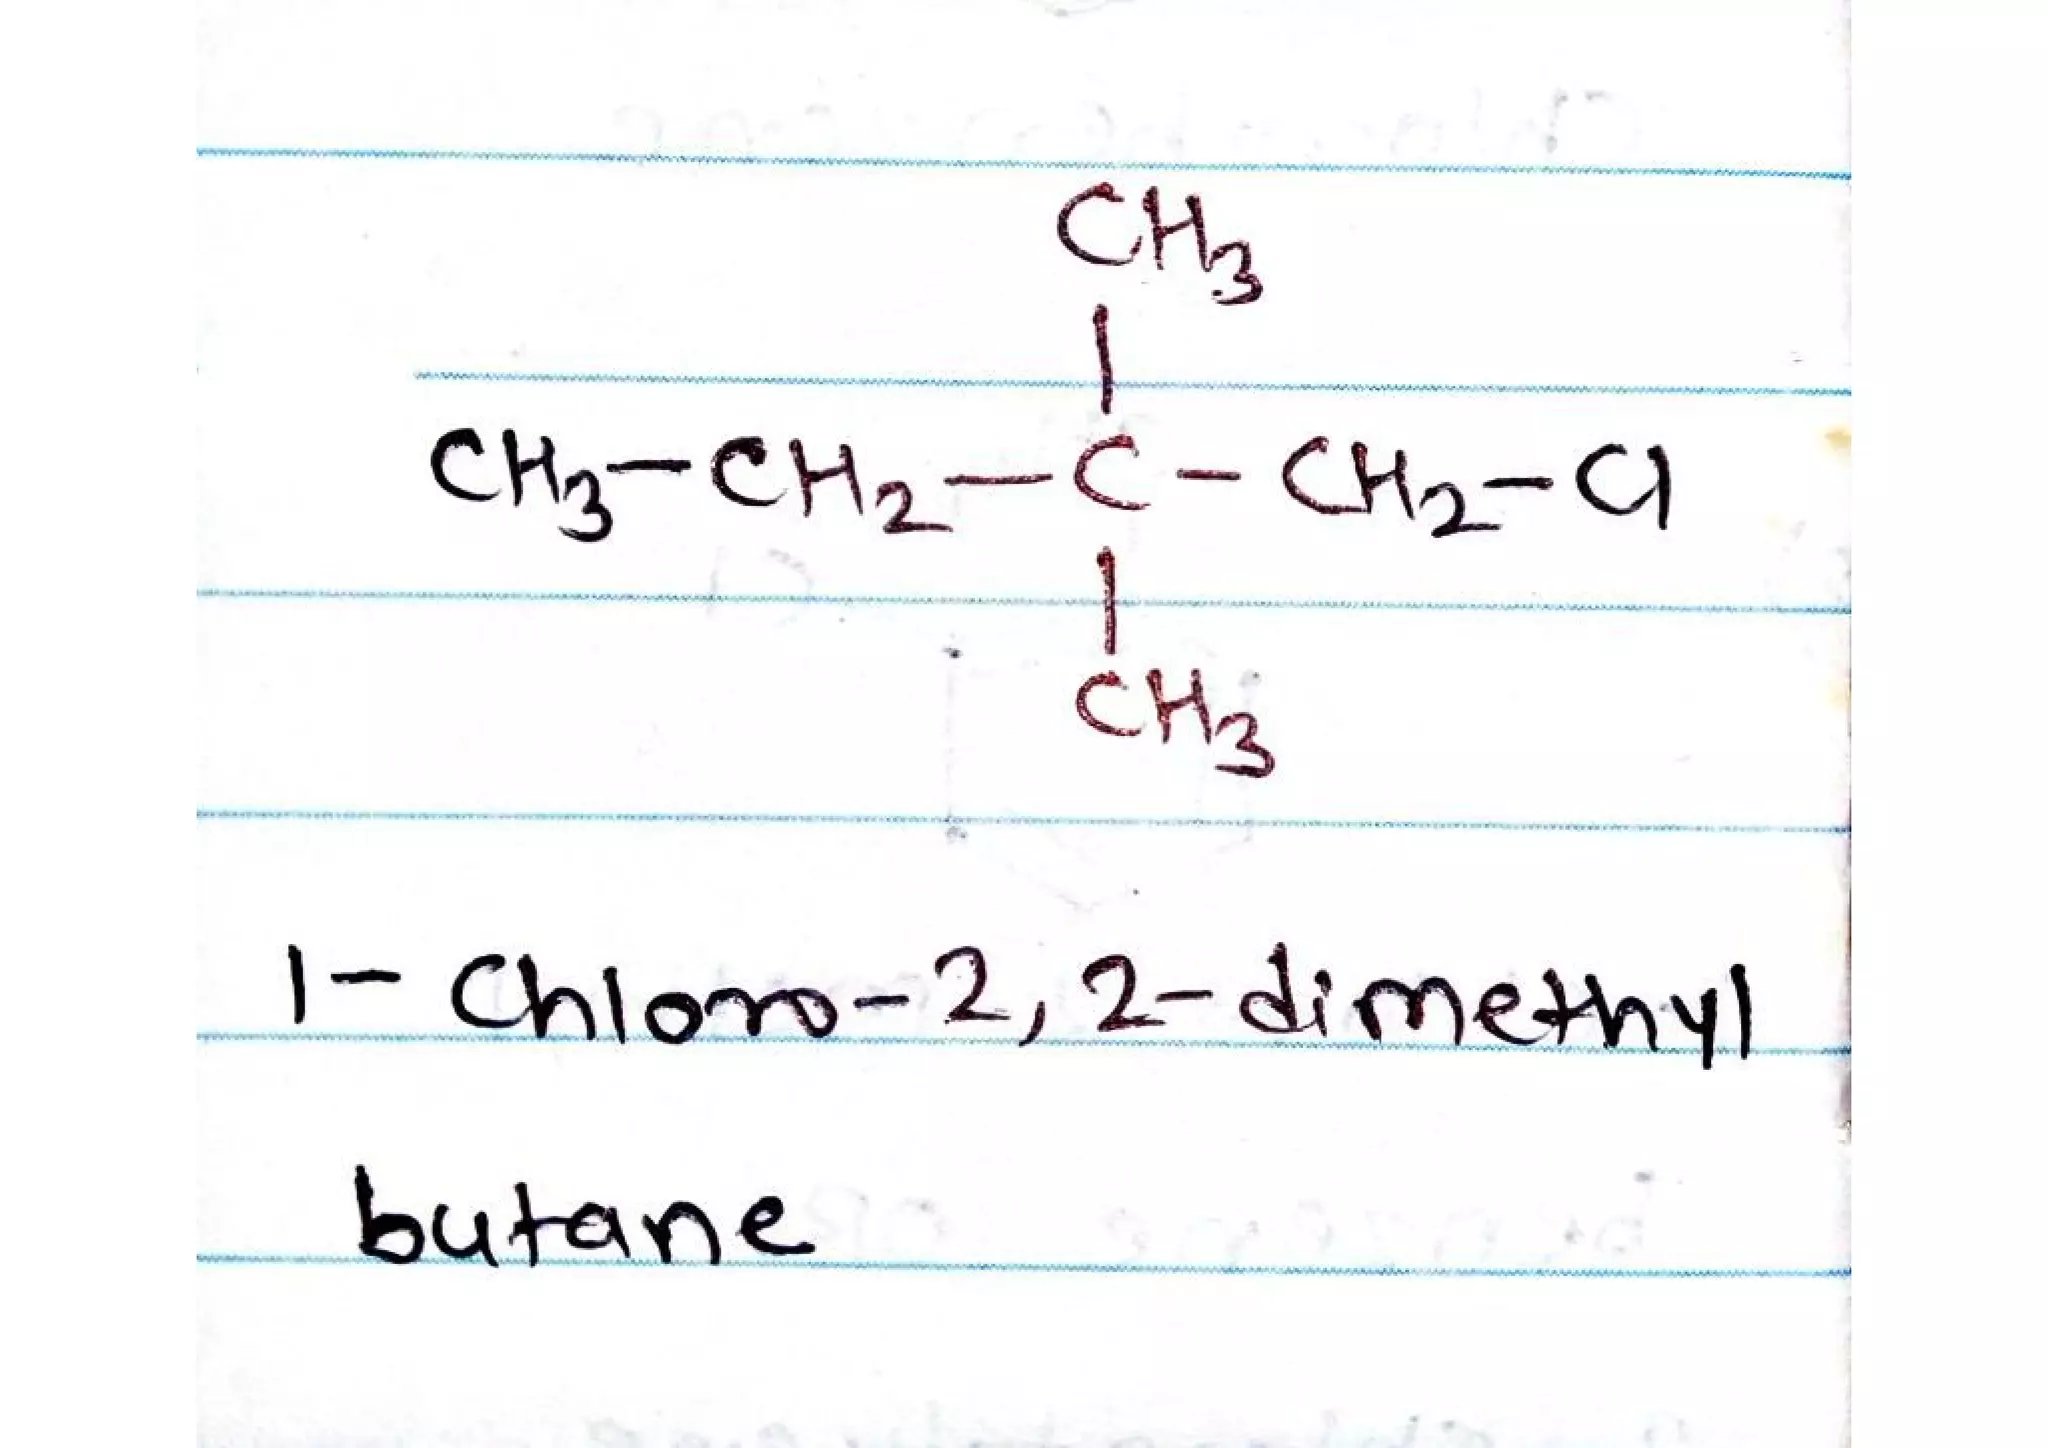 CH₃
|
CH₃-CH₂-C-CH₂-Cl
|
CH₃
1-Chloro-2,2-dimethyl
butane